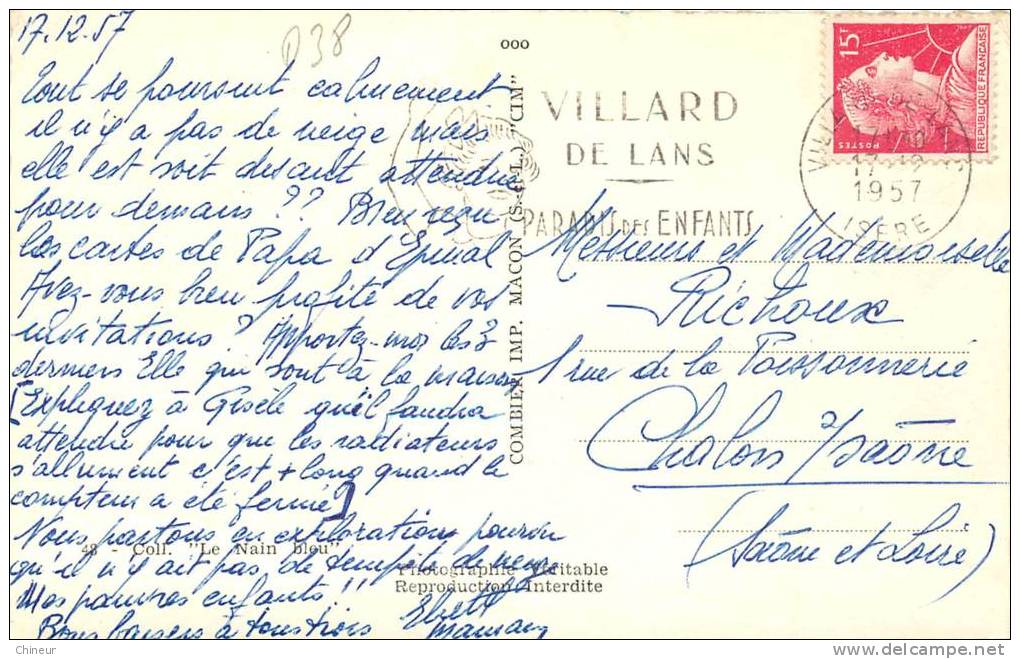 17.12.57
D38
Tout se poursuit calmement
il n'y a pas de neige mais
elle est soit disant attendue
pour demain ?? Bien reçu
les cartes de Papa d'Epinal
Avez-vous bien profité de vos
invitations ? Apportez-moi les 3
derniers Elle qui sont à la maison
[Expliquez à Gisèle qu'il faudra
attendre pour que les radiateurs
s'allument c'est + long quand le
compteur a été fermé]
Nous partons en exploration pourvu
qu'il n'y ait pas de tempête de neige
Mes pauvres enfants !!
Bons baisers à tous trois
Maman
48 - Coll. "Le Nain bleu"
Photographie Véritable
Reproduction Interdite
COMBIER IMP. MACON (S.-et-L.) "CIM"
ooo
VILLARD
DE LANS
PARADIS DES ENFANTS
15F
POSTES
REPUBLIQUE FRANÇAISE
17-12
1957
ISERE
Messieurs et Mademoiselle
Richoux
1 rue de la Poissonnerie
Chalon s/Saône
(Saône et Loire)
Chineur
delcampe.net